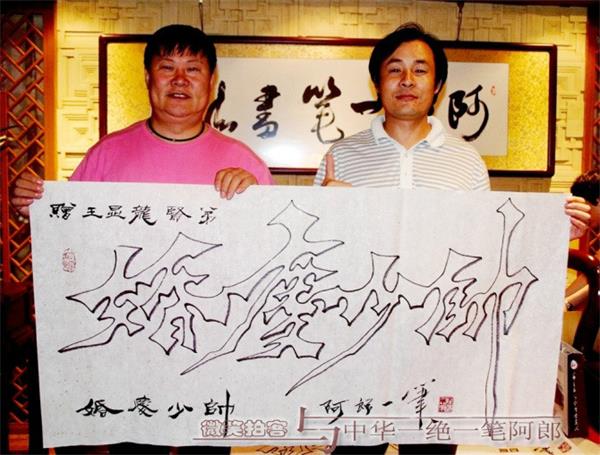 阿郎一笔書
贈王显龍賢弟
婚慶少帥
婚慶少帥 阿郎一筆
微笑拍客 与中华一绝一笔阿郎